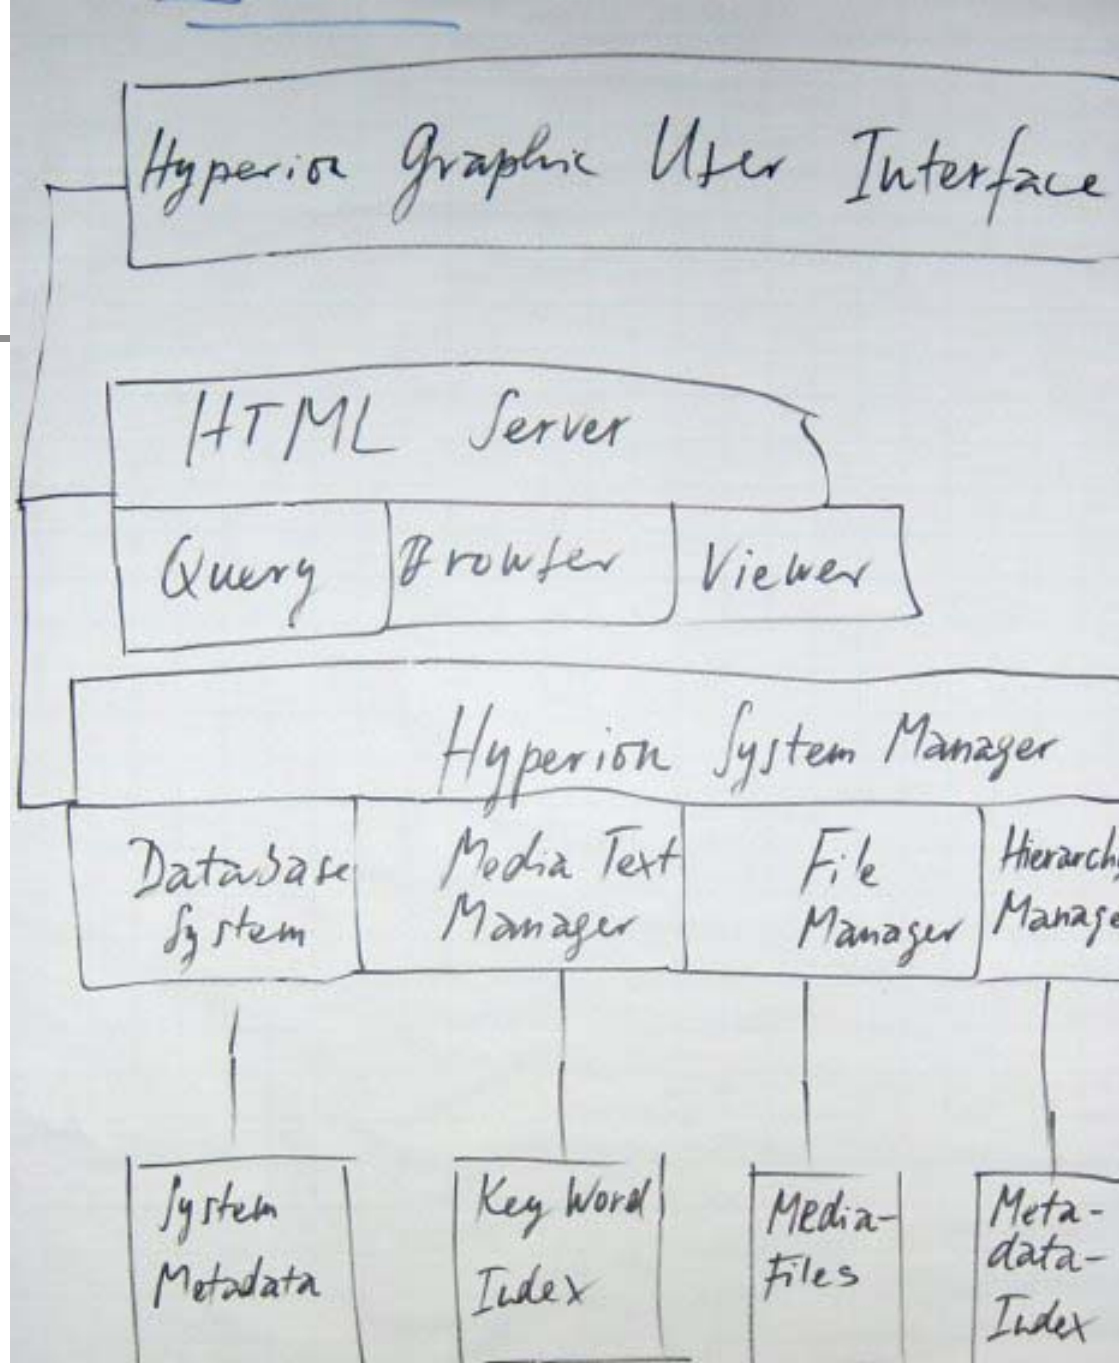 Hyperion Graphic User Interface
HTML Server
Query
Browser
Viewer
Hyperion System Manager
Database
System
Media Text
Manager
File
Manager
Hierarchy
Manage
System
Metadata
Key Word
Index
Media-
Files
Meta-
data-
Index